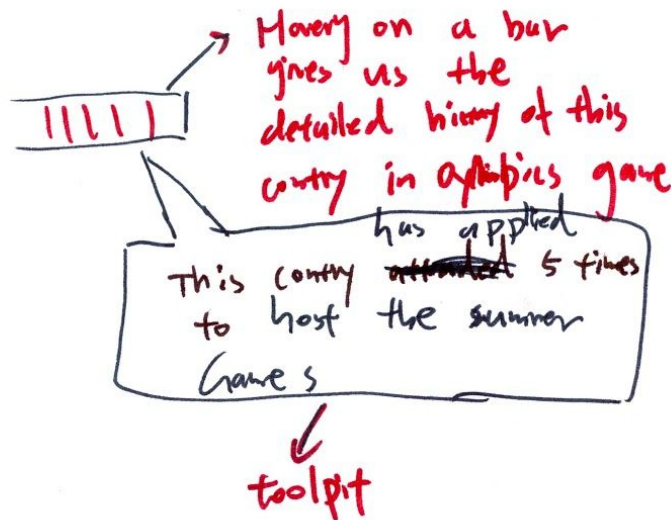 Hovery on a bar
gives us the
detailed history of this
contry in olympics game
has applied
This contry attended 5 times
to host the summer
Games
toolpit